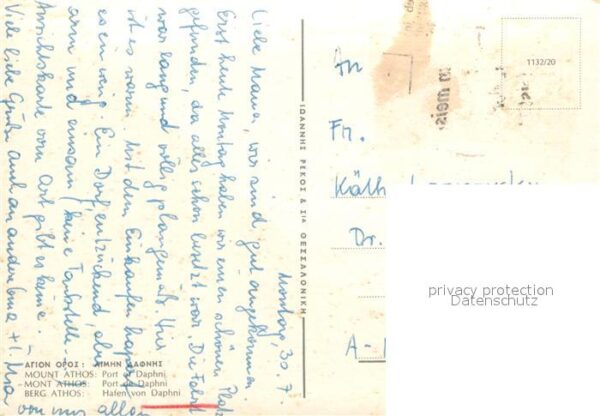 Montag, 30.7.
Liebe Mama, wir sind gut angekommen.
Erst heute Montag haben wir einen schönen Platz
gefunden, da alles schon besetzt war. Die Fahrt
war lang und völlig planmäß. Hier
ist es warm. Mit dem Einkaufen hapert
es ein wenig. Ein Dorf, entzückend, aber
arm und einsam (keine Tankstelle --
Ansichtskarte vom Ort gibt es keine.
Viele liebe Grüße auch an andere Oma +
von uns allen
ΙΩΑΝΝΗΣ ΡΕΚΟΣ & ΣΙΑ ΘΕΣΣΑΛΟΝΙΚΗ
1132/20
An
Fr.
Käthe
Dr.
A -
privacy protection
Datenschutz
ΑΓΙΟΝ ΟΡΟΣ : ΛΙΜΗΝ ΔΑΦΝΗΣ
MOUNT ATHOS: Port of Daphni
MONT ATHOS: Port de Daphni
BERG ATHOS: Hafen von Daphni